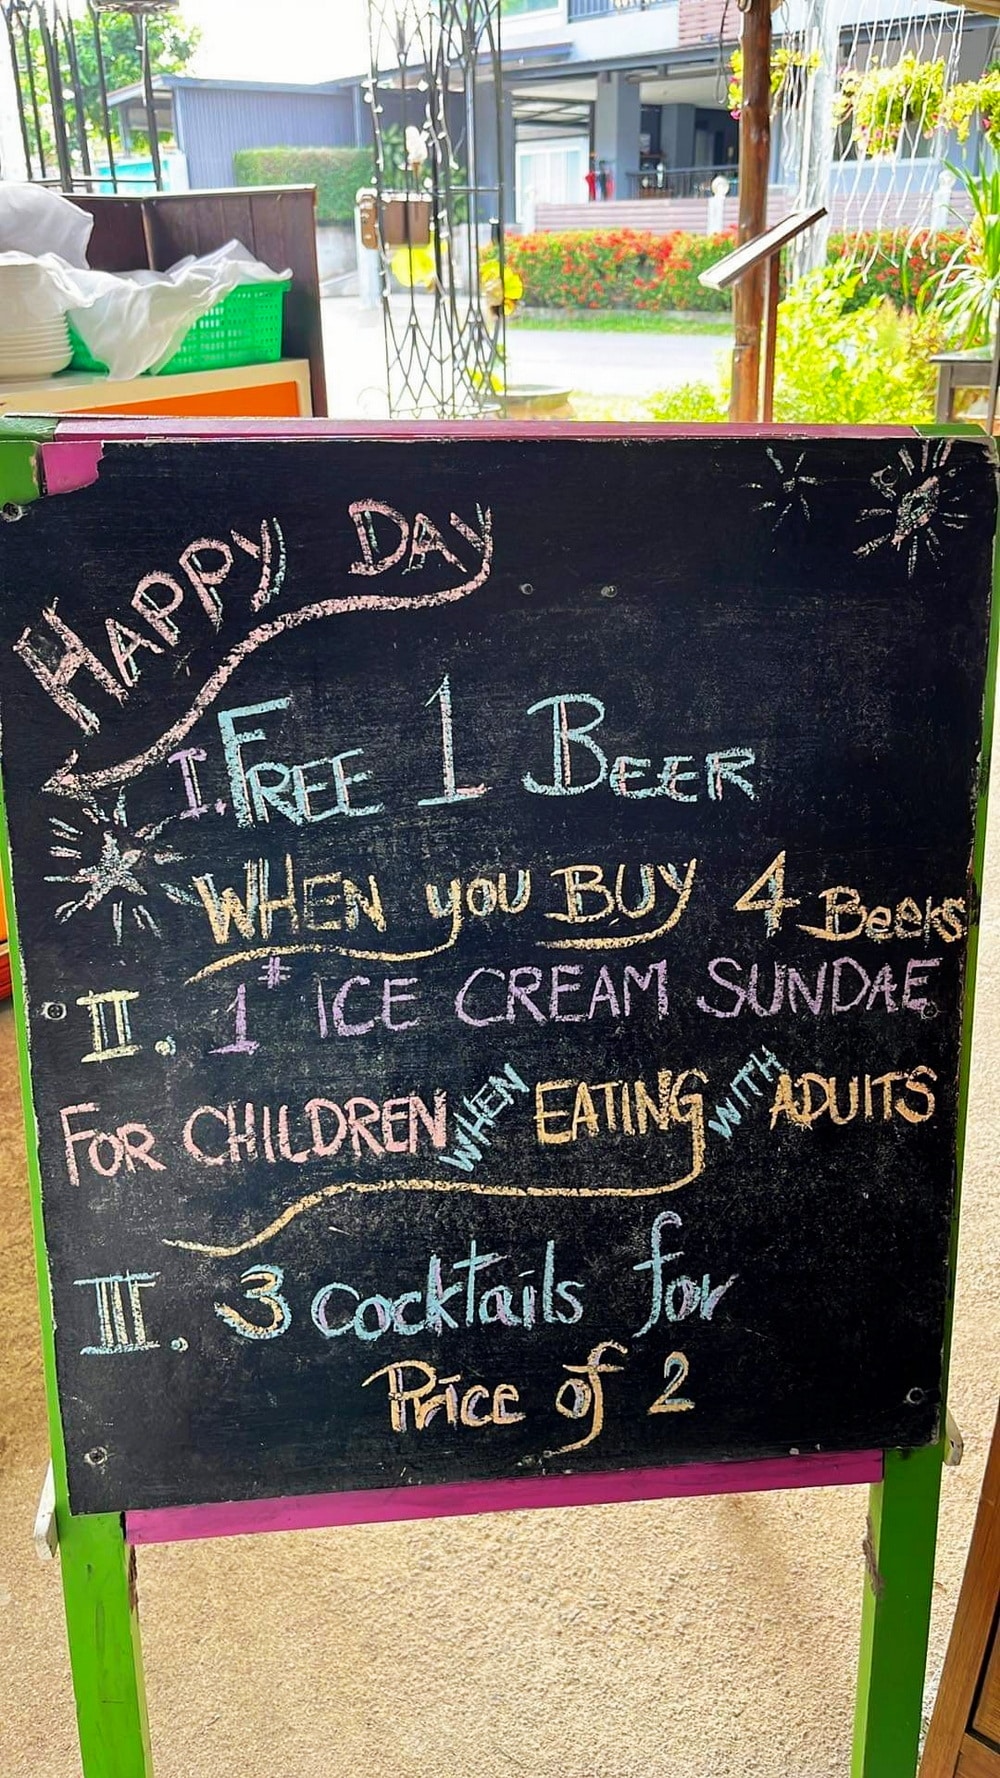 HAPPY DAY
I. FREE 1 BEER
WHEN you BUY 4 Beers
II. 1# ICE CREAM SUNDAE
FOR CHILDREN WHEN EATING WITH ADUITS
III. 3 cocktails for
Price of 2